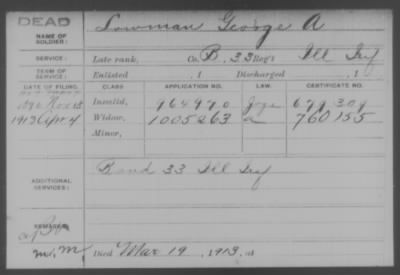 DEAD
NAME OF SOLDIER:
Lowman George A
SERVICE:
Late rank, Co. B, 33 Reg't Ill Inf
TERM OF SERVICE:
Enlisted , 1 Discharged , 1
DATE OF FILING. CLASS. APPLICATION NO. LAW. CERTIFICATE NO.
1890 Invalid, 964970
1913 Apr 4 Widow, 1005263 760155
Minor,
ADDITIONAL SERVICES:
Band 33 Ill Inf
REMARKS:
m.m. Died Mar 19, 1913, at